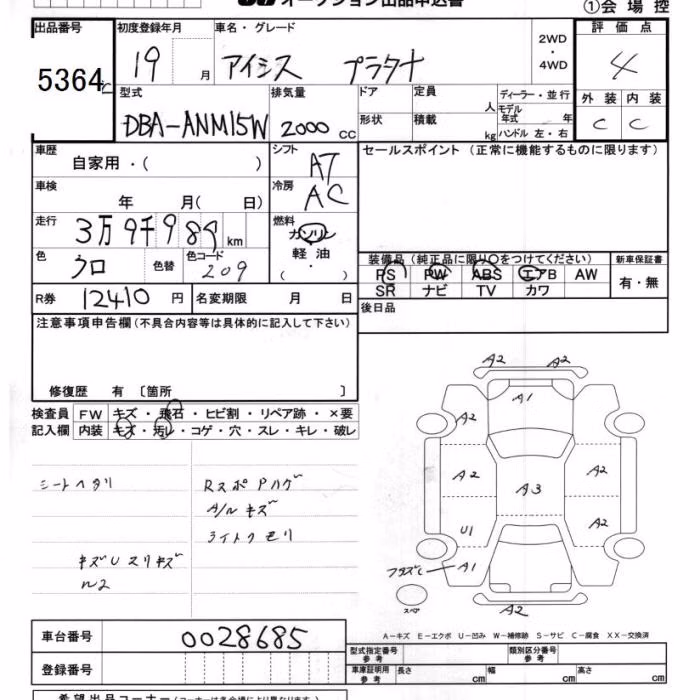 オークション出品申込書
①会場控
出品番号 初度登録年月 車名・グレード 2WD・4WD 評価点
5364 19 月 アイシス プラタナ 4
型式 排気量 ドア 定員 人 ディーラー・並行 外装 内装
DBA-ANM15W 2000 cc 形状 積載 kg モデル年式 年 C C
ハンドル 左・右
車歴 自家用・( ) シフト AT セールスポイント (正常に機能するものに限ります)
車検 年 月( 日) 冷房 AC
走行 3万9千989 km 燃料 ガソリン
軽油・( )
色 クロ 色替 色コード 209
装備品 (純正品に限り○をつけてください) 新車保証書
PS PW ABS エアB AW 有・無
SR ナビ TV カワ
R券 12410 円 名変期限 月 日 後日品
注意事項申告欄(不具合内容等は具体的に記入して下さい)
修復歴 有 〔箇所 〕
検査員 FW キズ・飛石・ヒビ割・リペア跡・×要
記入欄 内装 キズ・汚レ・コゲ・穴・スレ・キレ・破レ
シートヘタリ RスポPハゲ
A/Wキズ
ライトクモリ
キズUスリキズ
A2 A2
A1
A2
A2 A3 A2
U1 A2
A1
スペア
A2
A-キズ E-エクボ U-凹み W-補修跡 S-サビ C-腐食 XX-交換済
車台番号 0028685
型式指定番号 参考 類別区分番号 参考
登録番号 車庫証明用 参考 長さ cm 幅 cm 高さ cm
希望出品コーナー